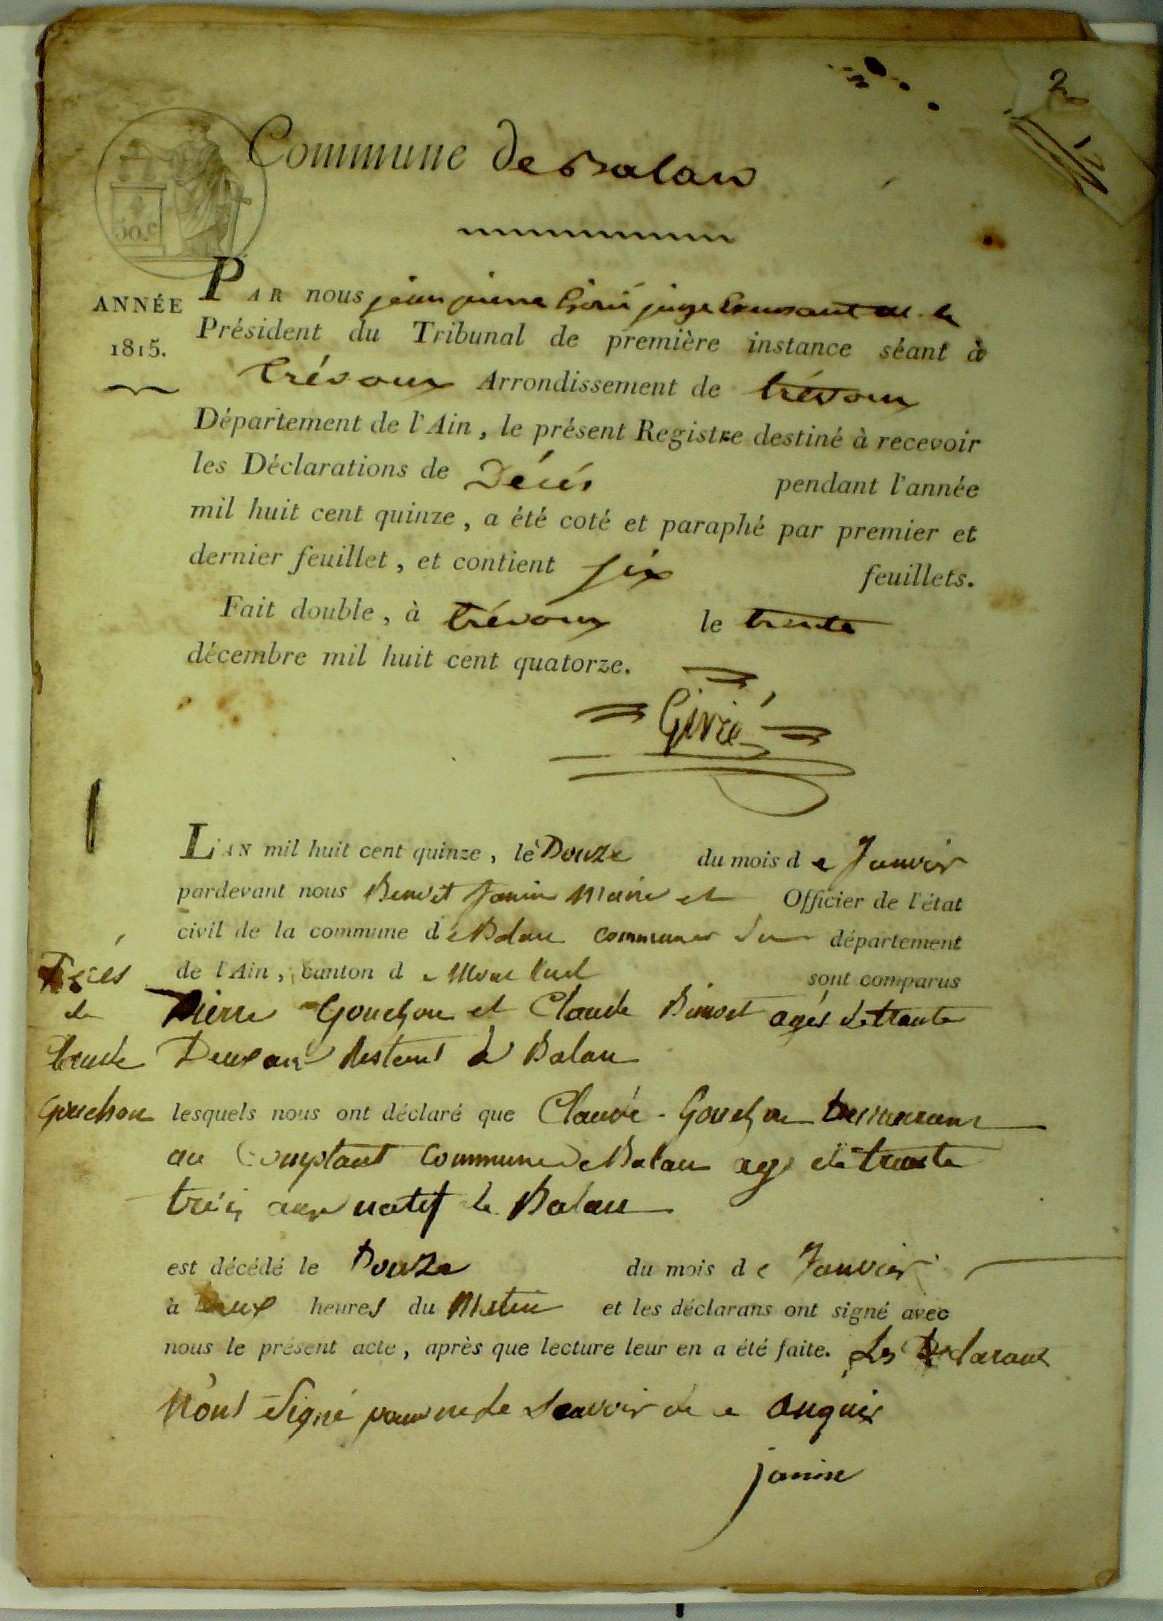 2
Commune de Balan
ANNÉE
1815.
PAR nous jean pierre Givré juge
Président du Tribunal de première instance séant à
trévoux Arrondissement de trévoux
Département de l'Ain, le présent Registre destiné à recevoir
les Déclarations de Décés pendant l'année
mil huit cent quinze, a été coté et paraphé par premier et
dernier feuillet, et contient six feuillets.
Fait double, à trévoux le trente
décembre mil huit cent quatorze.
Givré
L'AN mil huit cent quinze, le Douze du mois de Janvier
pardevant nous Benoit Janin Maire et Officier de l'état
civil de la commune de Balan département
de l'Ain, canton de sont comparus
Pierre Gouchon et Claude Benoit agés de trante
Deux ans Restent à Balan
Décés
de
Claude
Gouchon
lesquels nous ont déclaré que Claude Gouchon Demeurant
au Comptant Commune de Balan agé de trante
trois ans natif de Balan
est décédé le Douze du mois de Janvier
à Deux heures du Matin et les déclarans ont signé avec
nous le présent acte, après que lecture leur en a été faite. Les Declarant
N'ont Signé pour ne le Scavoir de ce Anquis
janin